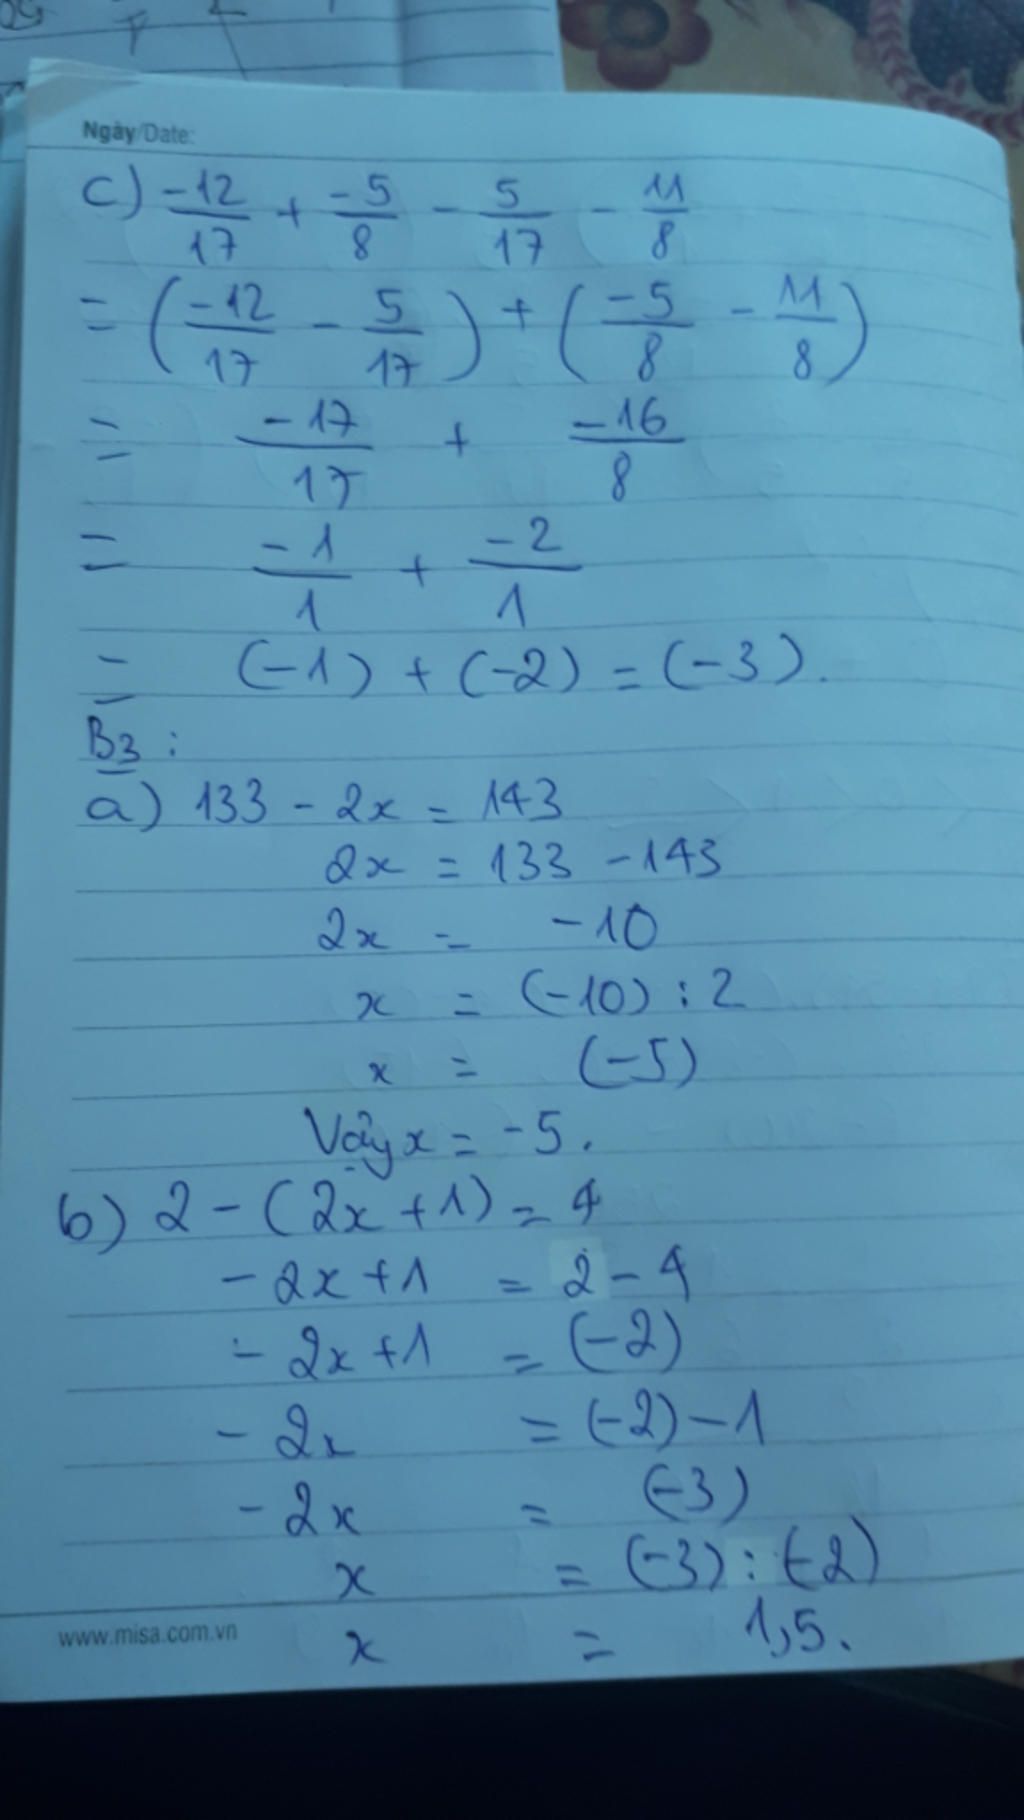 Ngày/Date:
c) -12/17 + -5/8 - 5/17 - 11/8
= (-12/17 - 5/17) + (-5/8 - 11/8)
= -17/17 + -16/8
= -1/1 + -2/1
= (-1) + (-2) = (-3).
B3:
a) 133 - 2x = 143
2x = 133 - 143
2x = -10
x = (-10) : 2
x = (-5)
Vậy x = -5.
b) 2 - (2x + 1) = 4
- 2x + 1 = 2 - 4
- 2x + 1 = (-2)
- 2x = (-2) - 1
- 2x = (-3)
x = (-3) : (-2)
www.misa.com.vn
x = 1,5.